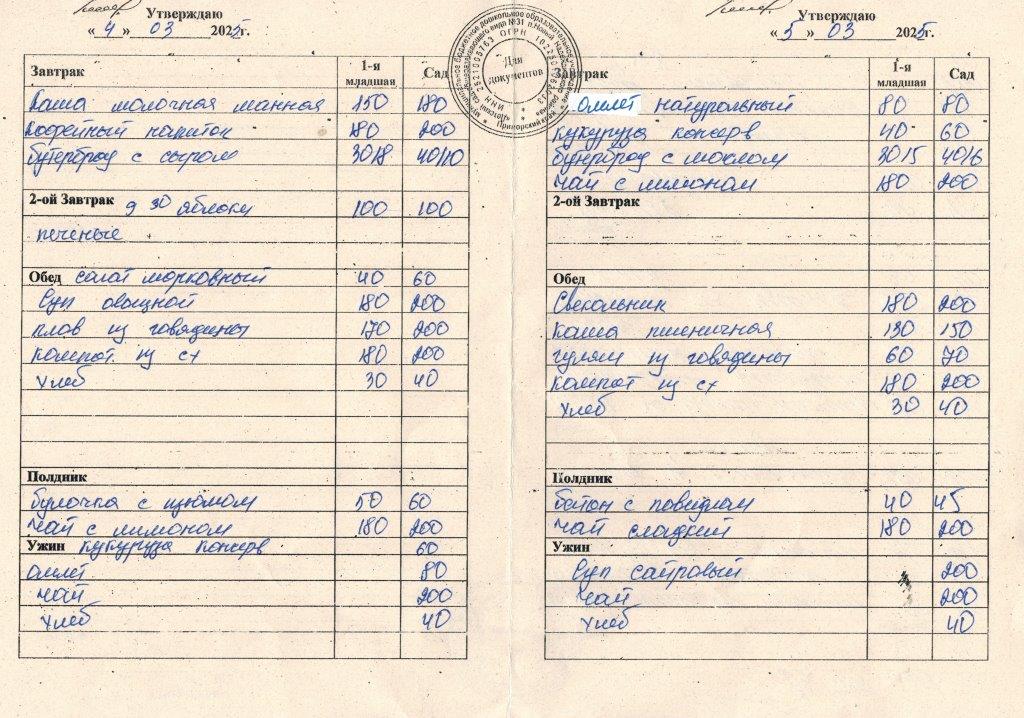 Утверждаю
« 4 » 03 2025г.
Завтрак 1-я младшая Сад
Каша молочная манная 150 180
Кофейный напиток 180 200
бутерброд с сыром 30/8 40/10
2-ой Завтрак 9 30 яблоки 100 100
печеные
Обед салат морковный 40 60
Суп овощной 180 200
плов из говядины 170 200
компот из сх 180 200
хлеб 30 40
Полдник
булочка с изюмом 50 60
Чай с лимоном 180 200
Ужин кукуруза консерв 60
омлет 80
Чай 200
хлеб 40
Для документов
Утверждаю
« 5 » 03 2025г.
Завтрак 1-я младшая Сад
Омлет натуральный 80 80
кукуруза консерв 40 60
бутерброд с маслом 30/5 40/6
Чай с лимоном 180 200
2-ой Завтрак
Обед
Свекольник 180 200
каша пшеничная 130 150
гуляш из говядины 60 70
компот из сх 180 200
хлеб 30 40
Полдник
батон с повидлом 40 45
Чай сладкий 180 200
Ужин
Суп сайровый 200
Чай 200
хлеб 40